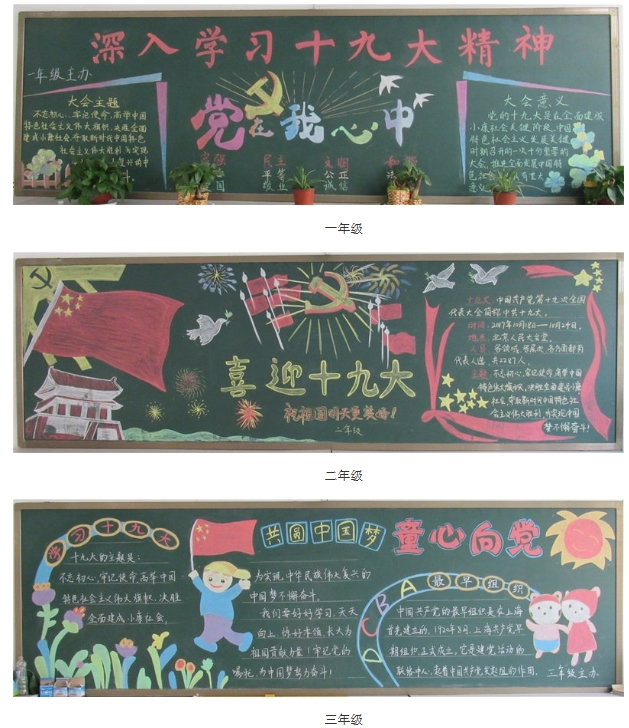 深入学习十九大精神
一年级主办
大会主题
不忘初心，牢记使命，高举中国
特色社会主义伟大旗帜，决胜全面
党在我心中
富强 民主 文明 和谐
平等 公正
爱国 敬业 诚信
大会意义
党的十九大是在全面建成
小康社会关键阶段，中国
特色社会主义发展关键
时期召开的一次十分重要的
大会，
一年级
喜迎十九大
祝祖国明天更美好！
二年级
十九大：中国共产党第十九次全国
代表大会简称中共十九大。
时间：2017年10月18日——10月24日。
地点：北京人民大会堂。
代表人选，共2287人。
主题：不忘初心，牢记使命，高举中国
特色社会主义伟大旗帜，决胜全面建成小康
社会，夺取新时代中国特色社
会主义伟大胜利，为实现中国
梦不懈奋斗！
二年级
学习十九大
十九大的主题是：
不忘初心，牢记使命，高举中国
特色社会主义伟大旗帜，决胜
全面建成小康社会，
共圆中国梦
童心向党
为实现中华民族伟大复兴的
中国梦不懈奋斗。
我们要好好学习，天天
向上，练好本领，长大为
祖国贡献力量！牢记党的
嘱托，为中国梦努力奋斗！
ABCD
最早组织
中国共产党的最早组织是在上海
首先建立的，1920年8月，上海共产党早
期组织正式成立，它是建党活动的
联络中心，起着中国共产党发起组的作用。
三年级主办
三年级